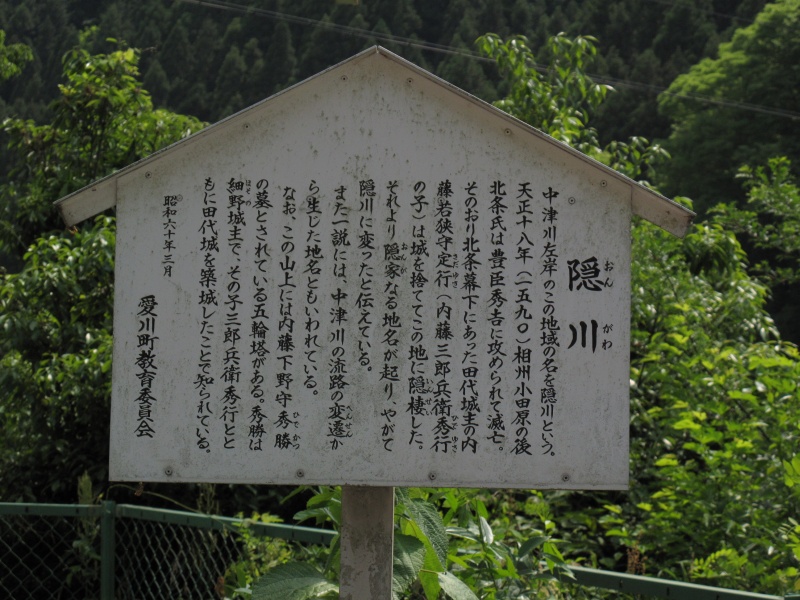 隠川
おんがわ
中津川左岸のこの地域の名を隠川という。
天正十八年（一五九〇）相州小田原の後
北条氏は豊臣秀吉に攻められて滅亡。
そのおり北条幕下にあった田代城主の内
藤若狭守定行（内藤三郎兵衛秀行
さだゆき
ひでゆき
の子）は城を捨ててこの地に隠棲した。
いんせい
それより隠家なる地名が起り、やがて
おんが
隠川に変ったと伝えている。
また一説には、中津川の流路の変遷か
へんせん
ら生じた地名ともいわれている。
なお、この山上には内藤下野守秀勝
ひでかつ
の墓とされている五輪塔がある。秀勝は
細野城主で、その子三郎兵衛秀行とと
ほその
もに田代城を築城したことで知られている。
昭和六十年三月
愛川町教育委員会